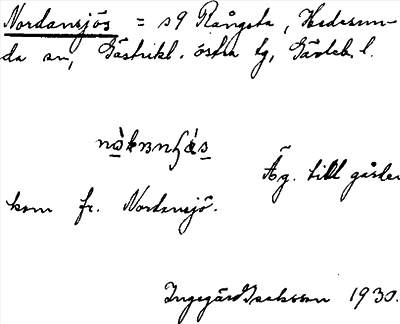 Nordansjös = s9 Rångsta, Hedesun-
da sn, Gästrikl. östra tg, Gävleb. l.
Äg. till gården
kom fr. Nordansjö.
Ingegärd Isaksson 1930.